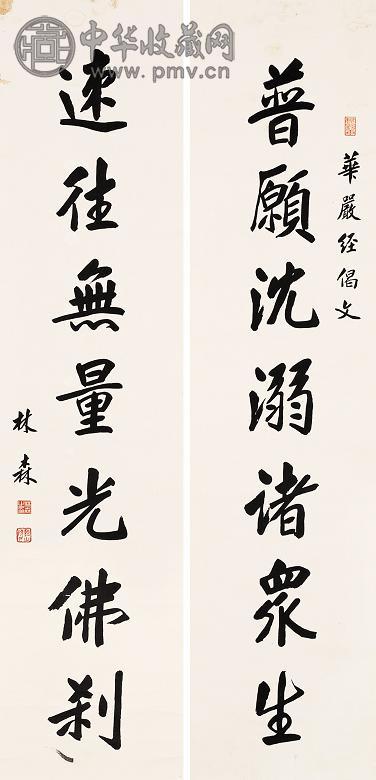 中华收藏网
www.pmv.cn
華嚴經偈文
普願沈溺諸眾生
速往無量光佛刹
林森